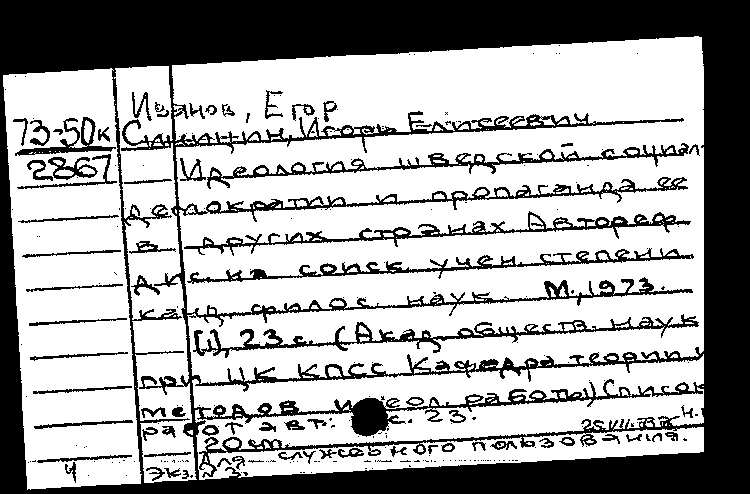 Иванов, Егор
73-50к Синицин, Игорь Елисеевич.
2867 Идеология шведской социал-
демократии и пропаганда ее
в других странах Автореф
дис. на соиск учен. степени
канд. филос. наук. М., 1973.
[1], 23 с. (Акад. обществ. наук
при ЦК КПСС Кафедра теории и
методов идеол. работы) Список
работ авт: с. 23.
20 см.
Для служебного пользования.
Экз. № 3.
4